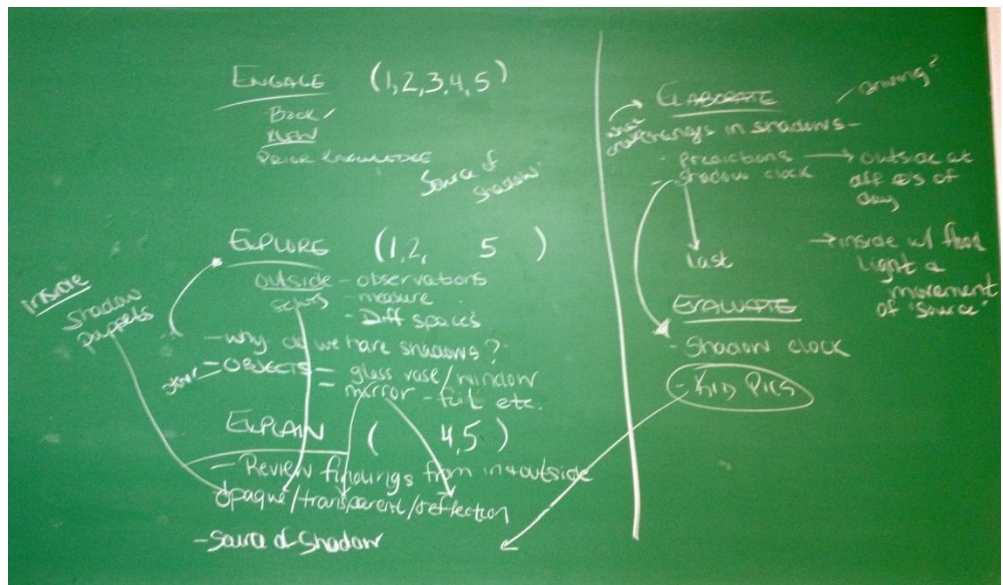 ENGAGE (1,2,3,4,5)
Book/
PRIOR KNOWLEDGE
Source of
shadow
EXPLORE (1,2, 5 )
outside - observations
- measure
- Diff spaces
inside
shadow
puppets
- why do we have shadows?
- OBJECTS = glass vase/window
mirror - foil etc.
EXPLAIN ( 4,5 )
- Review findings from in+outside
opaque/transparent/reflection
- Source of Shadow
ELABORATE
changes in shadows -
- predictions → outside at
- shadow clock
day
Last
→ inside w/ flood
light &
movement
of "source"
EVALUATE
- Shadow clock
- Kid Pics